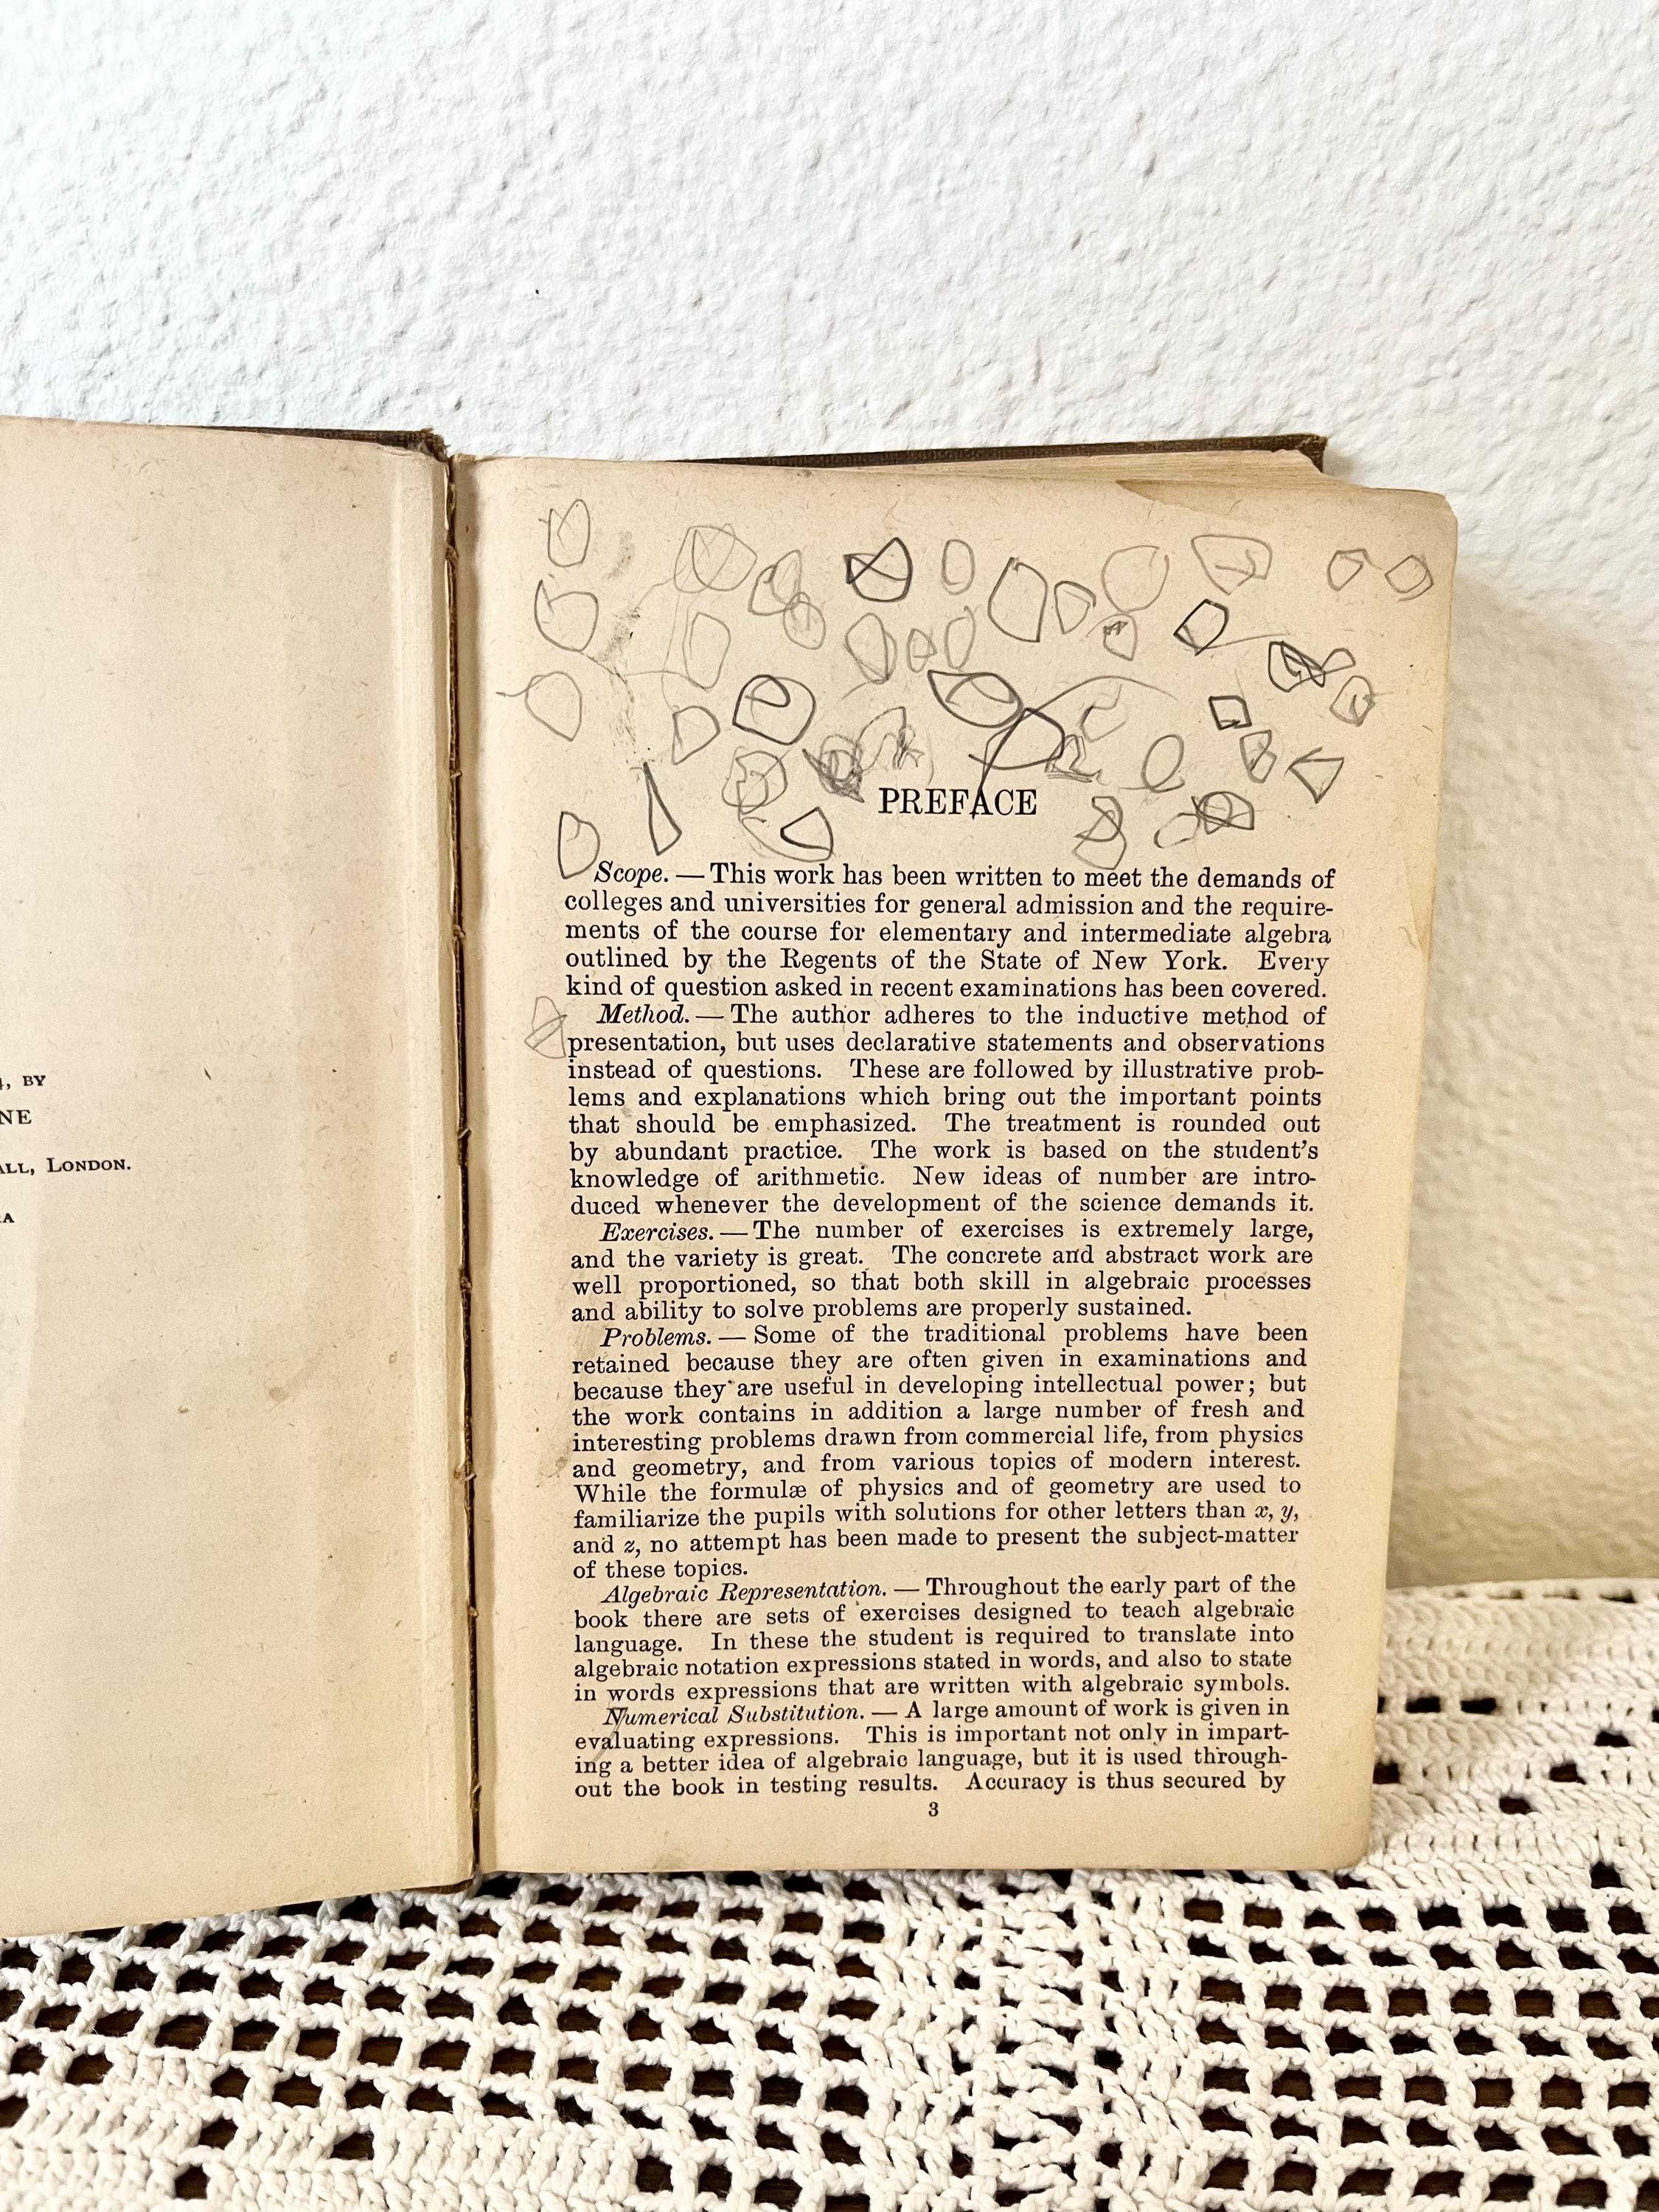 , BY
NE
ALL, LONDON.
RA
PREFACE
Scope. — This work has been written to meet the demands of
colleges and universities for general admission and the require-
ments of the course for elementary and intermediate algebra
outlined by the Regents of the State of New York. Every
kind of question asked in recent examinations has been covered.
Method. — The author adheres to the inductive method of
presentation, but uses declarative statements and observations
instead of questions. These are followed by illustrative prob-
lems and explanations which bring out the important points
that should be emphasized. The treatment is rounded out
by abundant practice. The work is based on the student's
knowledge of arithmetic. New ideas of number are intro-
duced whenever the development of the science demands it.
Exercises. — The number of exercises is extremely large,
and the variety is great. The concrete and abstract work are
well proportioned, so that both skill in algebraic processes
and ability to solve problems are properly sustained.
Problems. — Some of the traditional problems have been
retained because they are often given in examinations and
because they are useful in developing intellectual power; but
the work contains in addition a large number of fresh and
interesting problems drawn from commercial life, from physics
and geometry, and from various topics of modern interest.
While the formulæ of physics and of geometry are used to
familiarize the pupils with solutions for other letters than x, y,
and z, no attempt has been made to present the subject-matter
of these topics.
Algebraic Representation. — Throughout the early part of the
book there are sets of exercises designed to teach algebraic
language. In these the student is required to translate into
algebraic notation expressions stated in words, and also to state
in words expressions that are written with algebraic symbols.
Numerical Substitution. — A large amount of work is given in
evaluating expressions. This is important not only in impart-
ing a better idea of algebraic language, but it is used through-
out the book in testing results. Accuracy is thus secured by
3